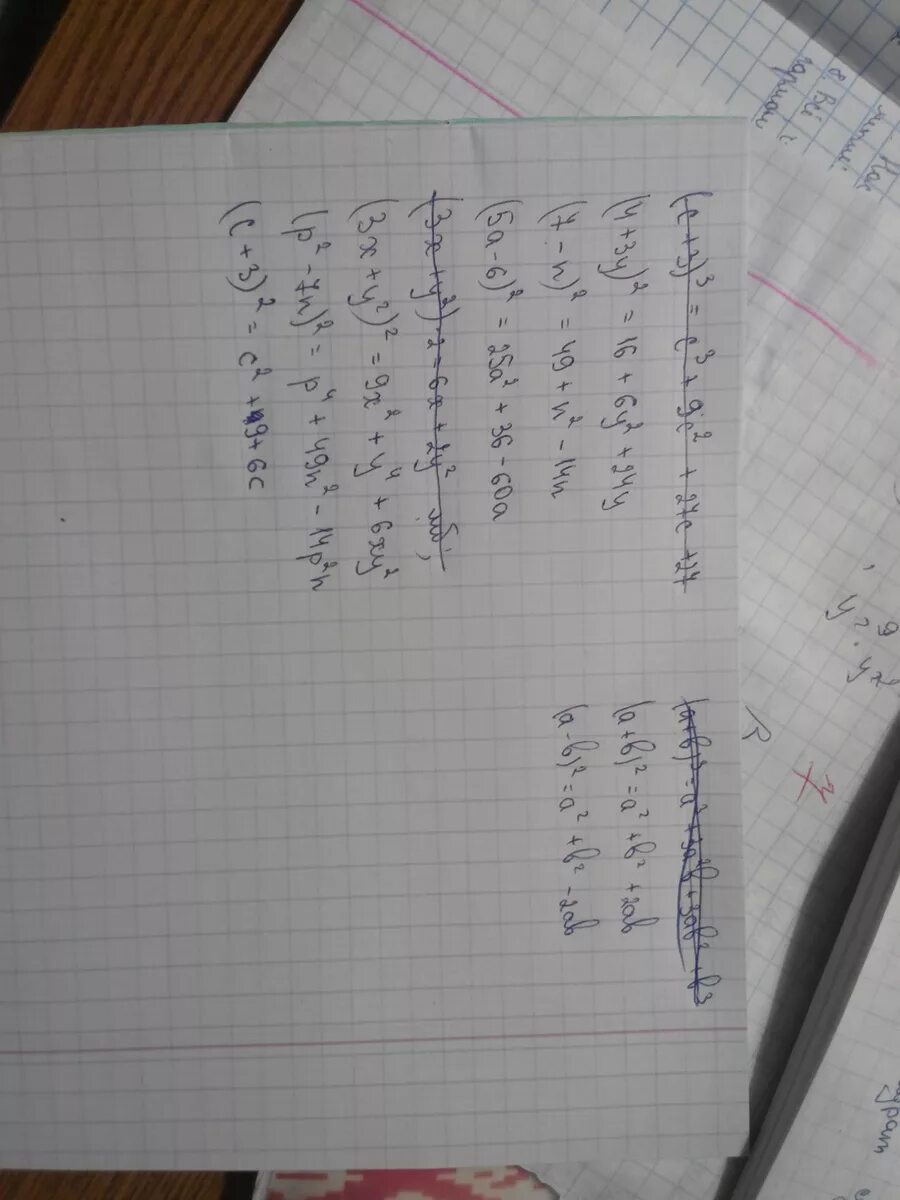 (c+3)³ = c³ + 9c² + 27c + 27
(4+3y)² = 16 + 6y² + 24y
(7-n)² = 49 + n² - 14n
(5a-6)² = 25a² + 36 - 60a
(3x+y²)·2 = 6x + 2y²
(3x+y²)² = 9x² + y⁴ + 6xy²
(p²-7n)² = p⁴ + 49n² - 14p²n
(c+3)² = c² + 9 + 6c
(a+b)³ = a³ + 3a²b + 3ab² + b³
(a+b)² = a² + b² + 2ab
(a-b)² = a² + b² - 2ab